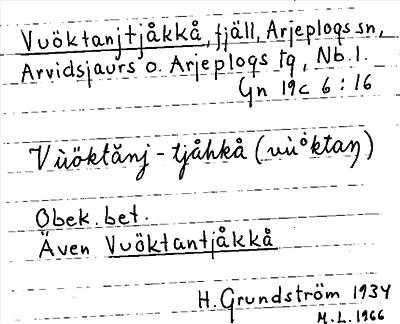 Vuöktanjtjåkkå, fjäll, Arjeplogs sn,
Arvidsjaurs o. Arjeplogs tg, Nb.l.
Gn 19c 6:16
Vùöktănj-tjåhkå (vùöktaŋ)
Obek. bet.
Även Vuöktantjåkkå
H. Grundström 1934
M.L. 1966